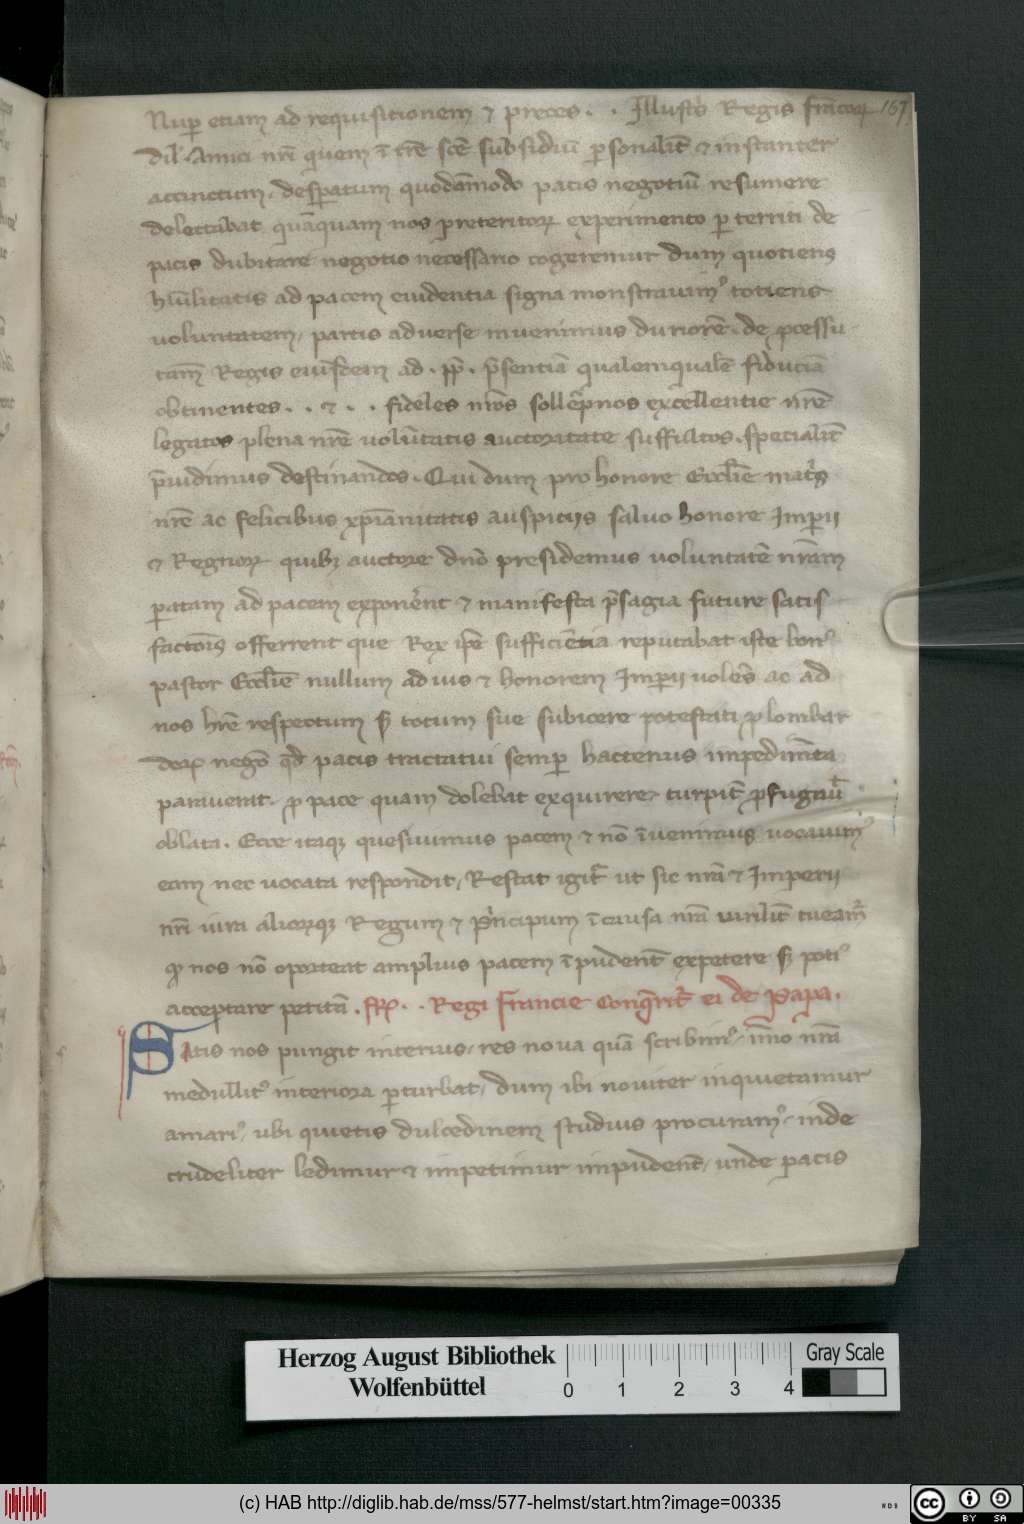 Nuꝑ etiam ad requisitionem ⁊ preces . . Illustr̄ Regis francoꝝ 167
dil̄ Amici nr̄i quem ī tr̄e sc̄e subsidiū ꝑsonalit̄ ⁊ instanter
accinctum, desꝑatum quodāmodo pacis negotiū resumere
delectabat, quāquam nos preteritoꝝ experimento ꝑterriti de
pacis dubitare negotio necessario cogeremur dum quotiens
hūilitatis ad pacem euidentia signa monstrauimꝰ totiens
voluntatem, partis aduerse inuenimus duriorē. de ꝓcessu
tam̄ Regis eiusdem ad . pp̄ . p̄sentiā qualemqualē fiduciā
obtinentes . . ⁊ . . fideles nr̄os sollēpnos excellentie nr̄e
legatos plena nr̄e volūtatis auctoritate suffultos. specialit̄
p̄uidimus destinandos. Qui dum pro honore Ecclīe matr̄s
nr̄e ac felicibus xp̄ianitatis auspitijs saluo honore Imꝑii
⁊ Regnoꝝ quibꝫ auctore dn̄o presidemus voluntatē nr̄am
ꝑatam ad pacem exponēnt ⁊ manifesta p̄sagia future satis
factiōis offerrent que Rex ip̄e sufficiētia reputabat iste bonꝰ
pastor Ecclīe nullum ad ius ⁊ honorem Imꝑii volēs ac ad
nos hr̄e respectum sꝫ totum sue subicere potestati ꝓ lombar
doꝝ negō qd̄ pacis tractatui semꝑ hactenus impedimēta
parauerat, ꝓ pace quam dolebat exquirere, turpit̄ ꝓfugauit̄
oblata. Ecce itaqꝫ quesiuimus pacem ⁊ nō īuenimus, vocauimꝰ
eam nec vocata respondit, Restat igit̄ ut sic nr̄a ⁊ Imperii
nr̄i iura alioꝝqꝫ Regum ⁊ Pⁱncipum ī causa nr̄a virilit̄ tueam̄
qd̄ nos nō oporteat amplius pacem īpudent̄ expetere sꝫ potiꝰ
acceptare petitā . ffr̄ . . Regi Francie Conq̄rit̄ ei de Papa.
Satis nos pungit interius, res noua quā scribimꝰ, īmo nr̄a
medullitꝰ interiora ꝑturbat, dum ibi nouiter inquietamur
amariꝰ, ubi quietis dulcedinem studiis procuramꝰ, inde
crudeliter ledimur ⁊ impetimur impudent̄, unde pacis
Herzog August Bibliothek
Wolfenbüttel
0 1 2 3 4
Gray Scale
(c) HAB http://diglib.hab.de/mss/577-helmst/start.htm?image=00335
WDB
cc BY SA